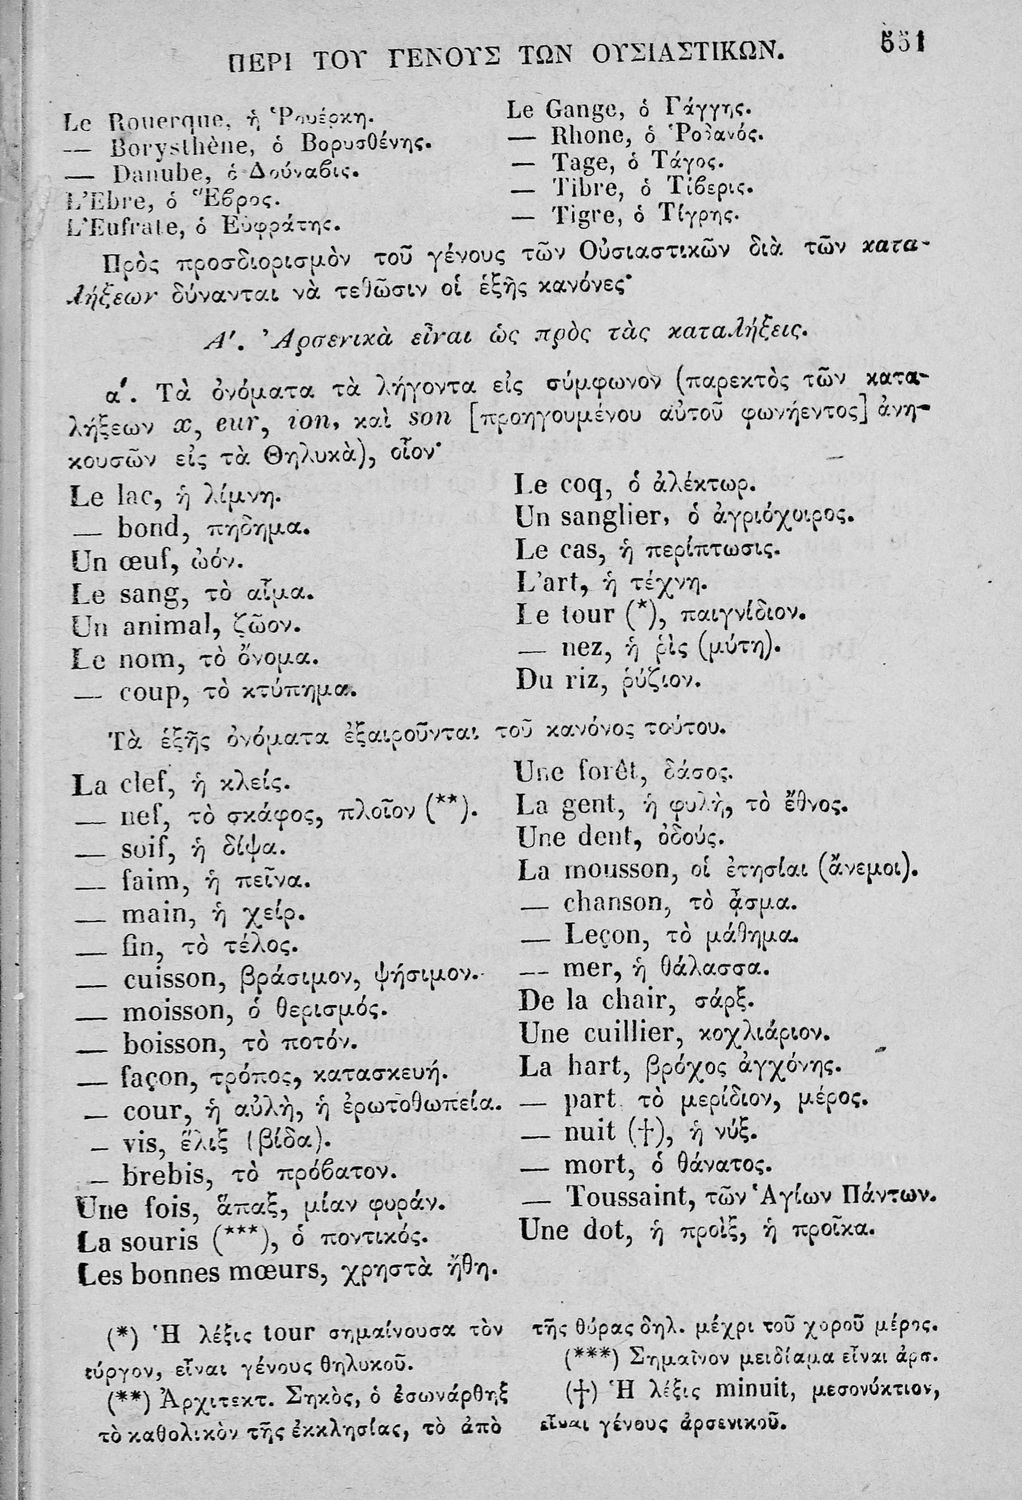 ΠΕΡΙ ΤΟΥ ΓΕΝΟΥΣ ΤΩΝ ΟΥΣΙΑΣΤΙΚΩΝ.
551
Le Rouerque, ἡ Ῥουέρκη.
— Borysthène, ὁ Βορυσθένης.
— Danube, ὁ Δούναβις.
L'Ebre, ὁ Ἕβρος.
L'Eufrate, ὁ Εὐφράτης.
Le Gange, ὁ Γάγγης.
— Rhone, ὁ Ῥοδανός.
— Tage, ὁ Τάγος.
— Tibre, ὁ Τίβερις.
— Tigre, ὁ Τίγρης.
Πρὸς προσδιορισμὸν τοῦ γένους τῶν Οὐσιαστικῶν διὰ τῶν κατα-
λήξεων δύνανται νὰ τεθῶσιν οἱ ἑξῆς κανόνες·
Α'. Ἀρσενικὰ εἶναι ὡς πρὸς τὰς καταλήξεις.
α'. Τὰ ὀνόματα τὰ λήγοντα εἰς σύμφωνον (παρεκτὸς τῶν κατα-
λήξεων x, eur, ion, καὶ son [προηγουμένου αὐτοῦ φωνήεντος] ἀνη-
κουσῶν εἰς τὰ Θηλυκὰ), οἷον·
Le lac, ἡ λίμνη.
— bond, πήδημα.
Un œuf, ὠόν.
Le sang, τὸ αἷμα.
Un animal, ζῶον.
Le nom, τὸ ὄνομα.
— coup, τὸ κτύπημα.
Le coq, ὁ ἀλέκτωρ.
Un sanglier, ὁ ἀγριόχοιρος.
Le cas, ἡ περίπτωσις.
L'art, ἡ τέχνη.
Le tour (*), παιγνίδιον.
— nez, ἡ ῥὶς (μύτη).
Du riz, ῥύζιον.
Τὰ ἑξῆς ὀνόματα ἐξαιροῦνται τοῦ κανόνος τούτου.
La clef, ἡ κλείς.
— nef, τὸ σκάφος, πλοῖον (**).
— soif, ἡ δίψα.
— faim, ἡ πεῖνα.
— main, ἡ χείρ.
— fin, τὸ τέλος.
— cuisson, βράσιμον, ψήσιμον.
— moisson, ὁ θερισμός.
— boisson, τὸ ποτόν.
— façon, τρόπος, κατασκευή.
— cour, ἡ αὐλὴ, ἡ ἐρωτοθωπεία.
— vis, ἕλιξ (βίδα).
— brebis, τὸ πρόβατον.
Une fois, ἅπαξ, μίαν φοράν.
La souris (***), ὁ ποντικός.
Les bonnes mœurs, χρηστὰ ἤθη.
Une forêt, δάσος.
La gent, ἡ φυλὴ, τὸ ἔθνος.
Une dent, ὀδούς.
La mousson, οἱ ἐτησίαι (ἄνεμοι).
— chanson, τὸ ᾆσμα.
— Leçon, τὸ μάθημα.
— mer, ἡ θάλασσα.
De la chair, σάρξ.
Une cuillier, κοχλιάριον.
La hart, βρόχος ἀγχόνης.
— part τὸ μερίδιον, μέρος.
— nuit (†), ἡ νύξ.
— mort, ὁ θάνατος.
— Toussaint, τῶν Ἁγίων Πάντων.
Une dot, ἡ προὶξ, ἡ προῖκα.
(*) Ἡ λέξις tour σημαίνουσα τὸν
πύργον, εἶναι γένους θηλυκοῦ.
(**) Ἀρχιτεκτ. Σηκὸς, ὁ ἐσωνάρθηξ
τὸ καθολικὸν τῆς ἐκκλησίας, τὸ ἀπὸ
τῆς θύρας δηλ. μέχρι τοῦ χοροῦ μέρος.
(***) Σημαῖνον μειδίαμα εἶναι ἀρσ.
(†) Ἡ λέξις minuit, μεσονύκτιον,
εἶναι γένους ἀρσενικοῦ.